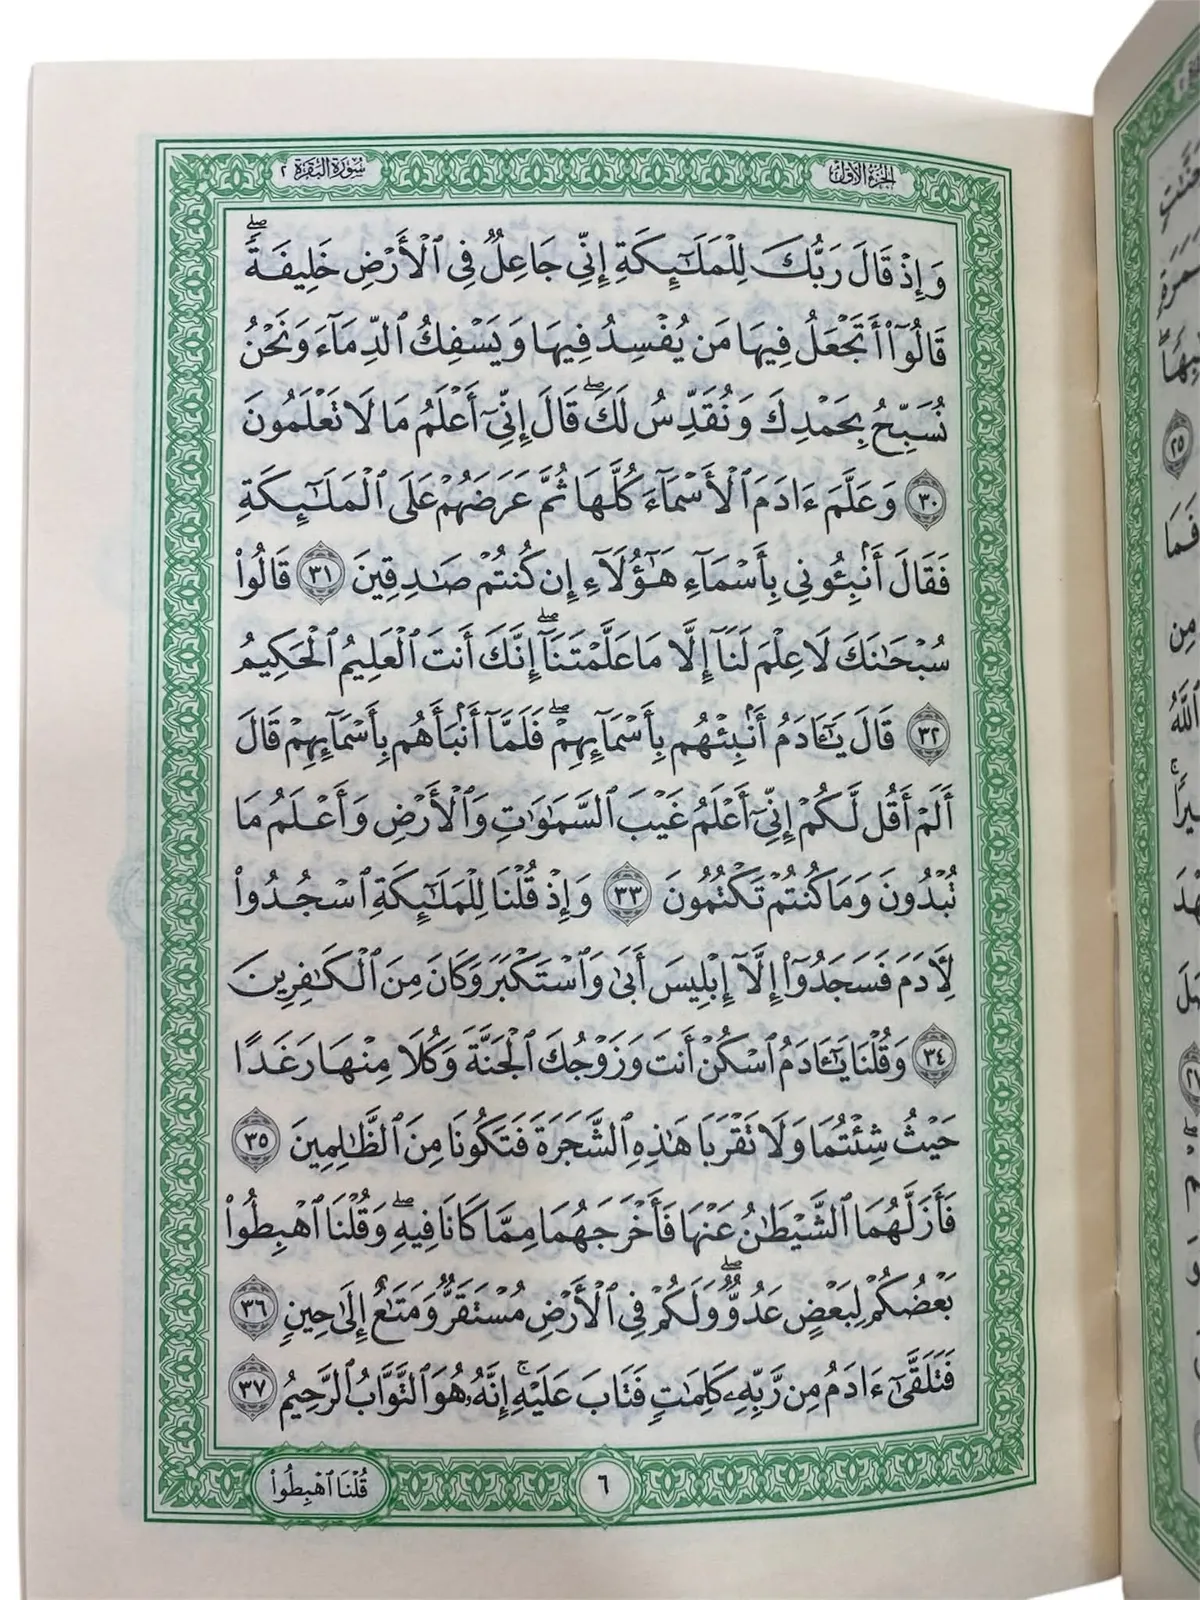 الجزء الأول
سورة البقرة ٢
وَإِذْ قَالَ رَبُّكَ لِلْمَلَٰٓئِكَةِ إِنِّى جَاعِلٌ فِى ٱلْأَرْضِ خَلِيفَةً ۖ
قَالُوٓا۟ أَتَجْعَلُ فِيهَا مَن يُفْسِدُ فِيهَا وَيَسْفِكُ ٱلدِّمَآءَ وَنَحْنُ
نُسَبِّحُ بِحَمْدِكَ وَنُقَدِّسُ لَكَ ۖ قَالَ إِنِّىٓ أَعْلَمُ مَا لَا تَعْلَمُونَ
٣٠ وَعَلَّمَ ءَادَمَ ٱلْأَسْمَآءَ كُلَّهَا ثُمَّ عَرَضَهُمْ عَلَى ٱلْمَلَٰٓئِكَةِ
فَقَالَ أَنۢبِـُٔونِى بِأَسْمَآءِ هَٰٓؤُلَآءِ إِن كُنتُمْ صَٰدِقِينَ ٣١ قَالُوا۟
سُبْحَٰنَكَ لَا عِلْمَ لَنَآ إِلَّا مَا عَلَّمْتَنَآ ۖ إِنَّكَ أَنتَ ٱلْعَلِيمُ ٱلْحَكِيمُ
٣٢ قَالَ يَٰٓـَٔادَمُ أَنۢبِئْهُم بِأَسْمَآئِهِمْ ۖ فَلَمَّآ أَنۢبَأَهُم بِأَسْمَآئِهِمْ قَالَ
أَلَمْ أَقُل لَّكُمْ إِنِّىٓ أَعْلَمُ غَيْبَ ٱلسَّمَٰوَٰتِ وَٱلْأَرْضِ وَأَعْلَمُ مَا
تُبْدُونَ وَمَا كُنتُمْ تَكْتُمُونَ ٣٣ وَإِذْ قُلْنَا لِلْمَلَٰٓئِكَةِ ٱسْجُدُوا۟
لِـَٔادَمَ فَسَجَدُوٓا۟ إِلَّآ إِبْلِيسَ أَبَىٰ وَٱسْتَكْبَرَ وَكَانَ مِنَ ٱلْكَٰفِرِينَ
٣٤ وَقُلْنَا يَٰٓـَٔادَمُ ٱسْكُنْ أَنتَ وَزَوْجُكَ ٱلْجَنَّةَ وَكُلَا مِنْهَا رَغَدًا
حَيْثُ شِئْتُمَا وَلَا تَقْرَبَا هَٰذِهِ ٱلشَّجَرَةَ فَتَكُونَا مِنَ ٱلظَّٰلِمِينَ ٣٥
فَأَزَلَّهُمَا ٱلشَّيْطَٰنُ عَنْهَا فَأَخْرَجَهُمَا مِمَّا كَانَا فِيهِ ۖ وَقُلْنَا ٱهْبِطُوا۟
بَعْضُكُمْ لِبَعْضٍ عَدُوٌّ ۖ وَلَكُمْ فِى ٱلْأَرْضِ مُسْتَقَرٌّ وَمَتَٰعٌ إِلَىٰ حِينٍ ٣٦
فَتَلَقَّىٰٓ ءَادَمُ مِن رَّبِّهِۦ كَلِمَٰتٍ فَتَابَ عَلَيْهِ ۚ إِنَّهُۥ هُوَ ٱلتَّوَّابُ ٱلرَّحِيمُ ٣٧
٦
قُلْنَا ٱهْبِطُوا۟